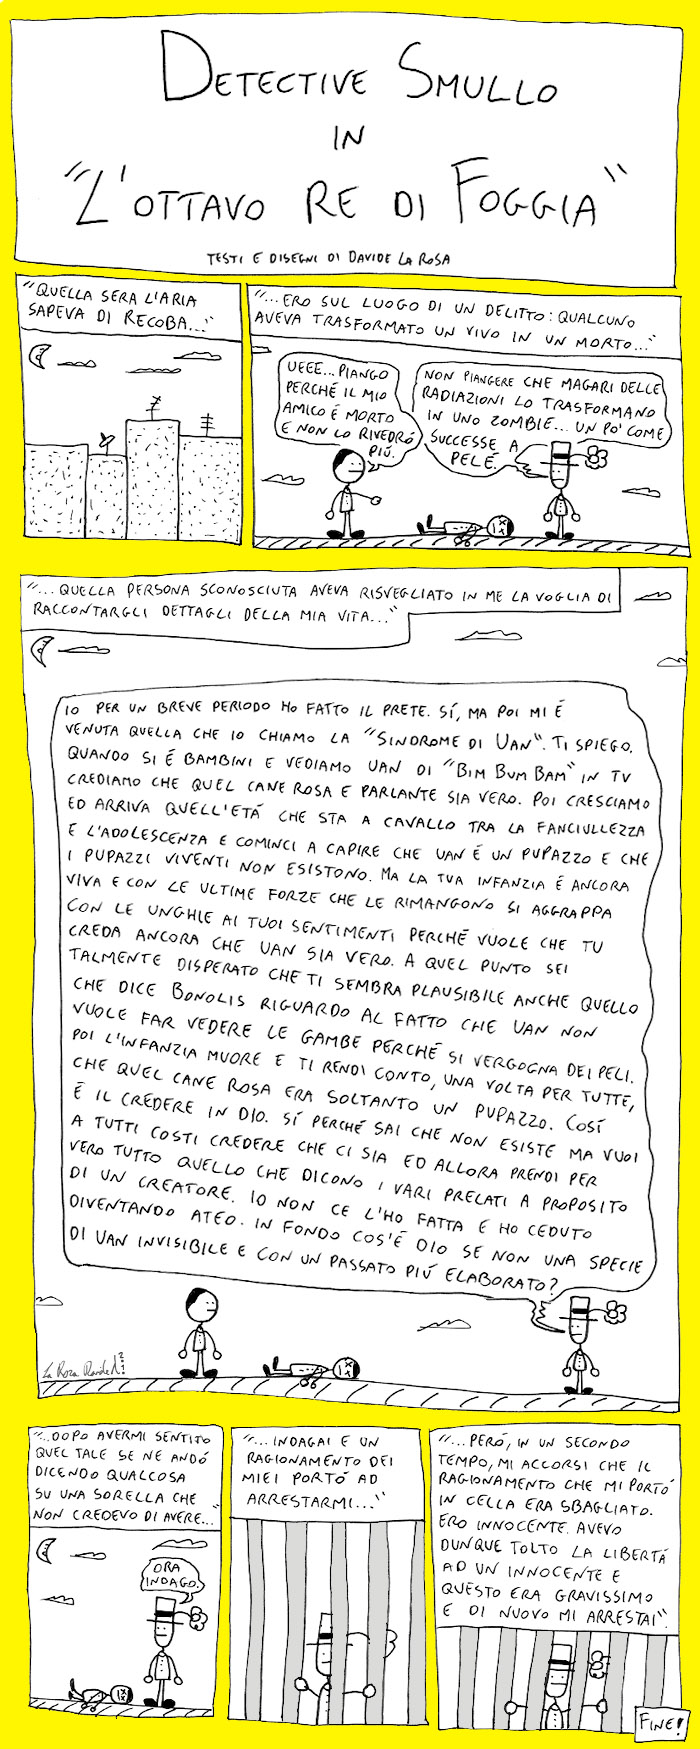 DETECTIVE SMULLO
IN
"L'OTTAVO RE DI FOGGIA"
TESTI E DISEGNI DI DAVIDE LA ROSA
"QUELLA SERA L'ARIA
SAPEVA DI RECOBA..."
"...ERO SUL LUOGO DI UN DELITTO: QUALCUNO
AVEVA TRASFORMATO UN VIVO IN UN MORTO..."
UEEE...PIANGO
PERCHÉ IL MIO
AMICO É MORTO
E NON LO RIVEDRÓ
PIÚ.
NON PIANGERE CHE MAGARI DELLE
RADIAZIONI LO TRASFORMANO
IN UNO ZOMBIE... UN PO' COME
SUCCESSE A
PELÉ.
"...QUELLA PERSONA SCONOSCIUTA AVEVA RISVEGLIATO IN ME LA VOGLIA DI
RACCONTARGLI DETTAGLI DELLA MIA VITA..."
IO PER UN BREVE PERIODO HO FATTO IL PRETE. SÍ, MA POI MI É
VENUTA QUELLA CHE IO CHIAMO LA "SINDROME DI UAN". TI SPIEGO.
QUANDO SI É BAMBINI E VEDIAMO UAN DI "BIM BUM BAM" IN TV
CREDIAMO CHE QUEL CANE ROSA E PARLANTE SIA VERO. POI CRESCIAMO
ED ARRIVA QUELL'ETÁ CHE STA A CAVALLO TRA LA FANCIULLEZZA
E L'ADOLESCENZA E COMINCI A CAPIRE CHE UAN É UN PUPAZZO E CHE
I PUPAZZI VIVENTI NON ESISTONO. MA LA TUA INFANZIA É ANCORA
VIVA E CON LE ULTIME FORZE CHE LE RIMANGONO SI AGGRAPPA
CON LE UNGHIE AI TUOI SENTIMENTI PERCHÉ VUOLE CHE TU
CREDA ANCORA CHE UAN SIA VERO. A QUEL PUNTO SEI
TALMENTE DISPERATO CHE TI SEMBRA PLAUSIBILE ANCHE QUELLO
CHE DICE BONOLIS RIGUARDO AL FATTO CHE UAN NON
VUOLE FAR VEDERE LE GAMBE PERCHÉ SI VERGOGNA DEI PELI.
POI L'INFANZIA MUORE E TI RENDI CONTO, UNA VOLTA PER TUTTE,
CHE QUEL CANE ROSA ERA SOLTANTO UN PUPAZZO. COSÍ
É IL CREDERE IN DIO. SÍ PERCHÉ SAI CHE NON ESISTE MA VUOI
A TUTTI COSTI CREDERE CHE CI SIA ED ALLORA PRENDI PER
VERO TUTTO QUELLO CHE DICONO I VARI PRELATI A PROPOSITO
DI UN CREATORE. IO NON CE L'HO FATTA E HO CEDUTO
DIVENTANDO ATEO. IN FONDO COS'É DIO SE NON UNA SPECIE
DI UAN INVISIBILE E CON UN PASSATO PIÚ ELABORATO?
La Rosa
"...DOPO AVERMI SENTITO
QUEL TALE SE NE ANDÓ
DICENDO QUALCOSA
SU UNA SORELLA CHE
NON CREDEVO DI AVERE..."
ORA
INDAGO.
"...INDAGAI E UN
RAGIONAMENTO DEI
MIEI PORTÓ AD
ARRESTARMI..."
"...PERÓ, IN UN SECONDO
TEMPO, MI ACCORSI CHE IL
RAGIONAMENTO CHE MI PORTÓ
IN CELLA ERA SBAGLIATO.
ERO INNOCENTE. AVEVO
DUNQUE TOLTO LA LIBERTÁ
AD UN INNOCENTE E
QUESTO ERA GRAVISSIMO
E DI NUOVO MI ARRESTAI".
FINE!